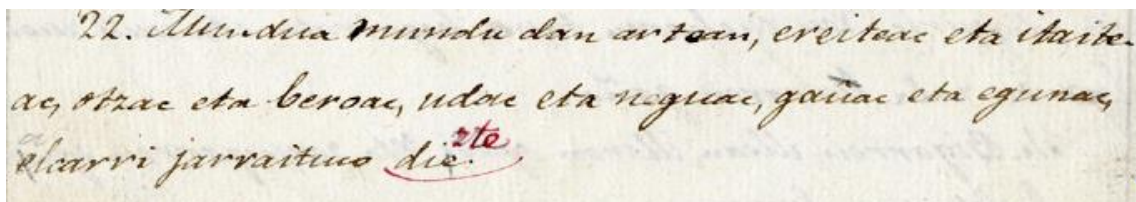 22. Mundua mundu dan artean, ereiteac eta itaite-
ac, otzac eta beroac, udac eta neguac, gauac eta egunac,
elcarri jarraituco die.zte